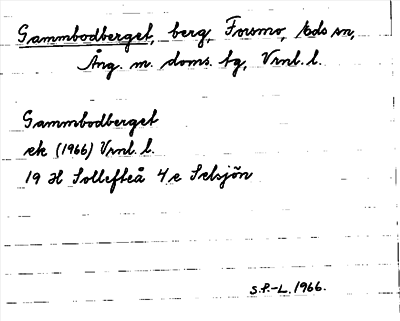 Gammbodberget, berg, Forsmo, Eds sn,
Ång. m. doms. tg, Vrnl. l.
Gammbodberget
ek (1966) Vrnl. l.
19 H Sollefteå 4 e Selsjön
S.P.-L. 1966.